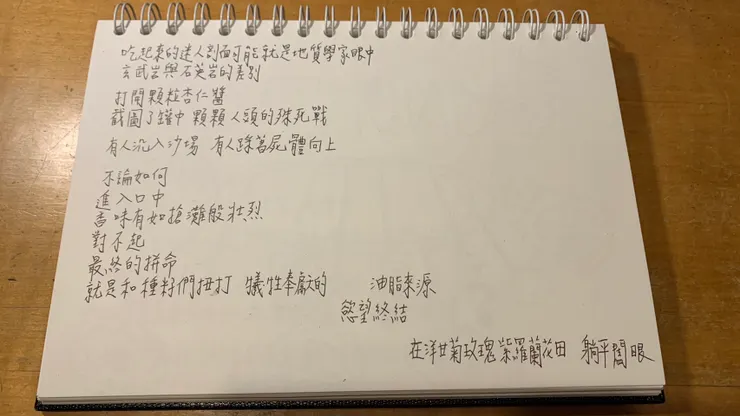 吃起來的迷人剖面可能就是地質學家眼中
玄武岩與石英岩的差別
打開顆粒杏仁醬
截圖了罐中 顆顆人頭的殊死戰
有人沉入沙場 有人踩著屍體向上
不論如何
進入口中
香味有如搶灘般壯烈
對不起
最終的拼命
就是和種籽們扭打 犧牲奉獻的 油脂來源
慾望終結
在洋甘菊玫瑰紫羅蘭花田 躺平闔眼